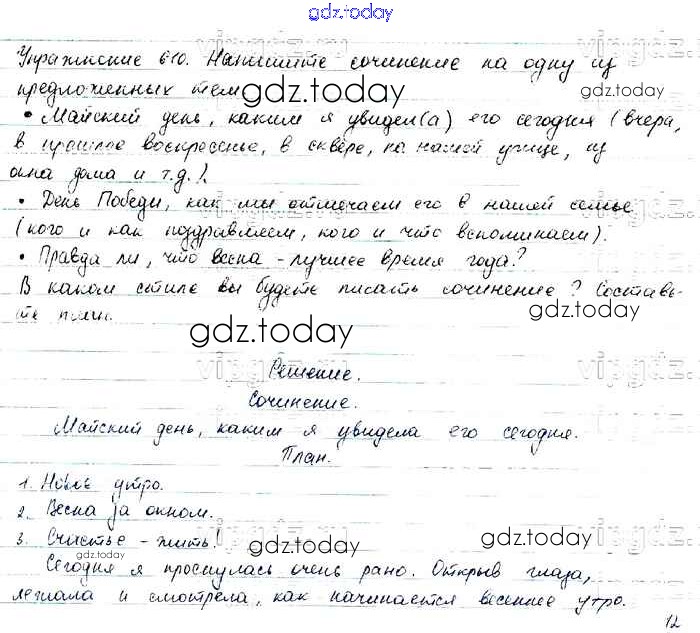 gdz.today
Упражнение 610. Напишите сочинение на одну из
предложенных тем
gdz.today
• Майский день, каким я увидел(а) его сегодня (вчера,
в прошлое воскресенье, в сквере, на нашей улице, из
окна дома и т.д.).
• День Победы, как мы отмечаем его в нашей семье
(кого и как поздравляем, кого и что вспоминаем).
• Правда ли, что весна - лучшее время года?
В каком стиле вы будете писать сочинение? Составь-
те план.
gdz.today
gdz.today
Решение.
Сочинение.
Майский день, каким я увидела его сегодня.
План.
1. Новое утро.
2. Весна за окном.
3. Счастье - жить!
gdz.today
gdz.today
gdz.today
Сегодня я проснулась очень рано. Открыв глаза,
лежала и смотрела, как начинается весеннее утро.
12